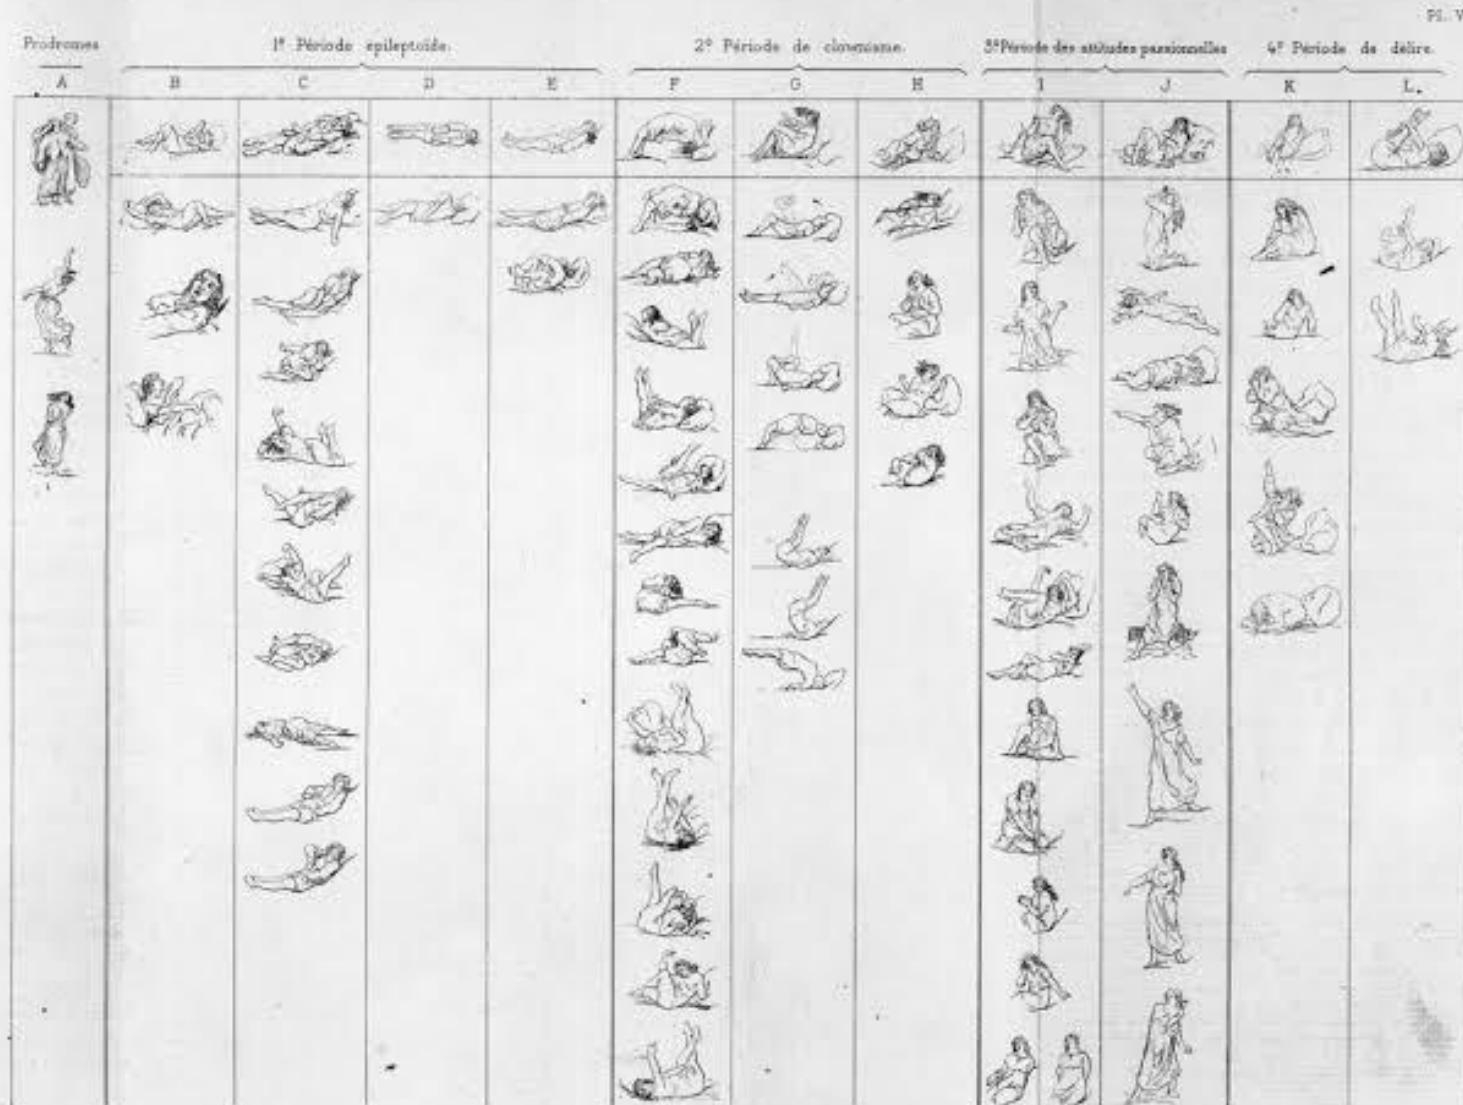 Pl. V
Prodromes
1ᵉ Période épileptoïde.
2ᵉ Période de clownisme.
3ᵉ Période des attitudes passionnelles
4ᵉ Période de délire.
A B C D E F G H I J K L.